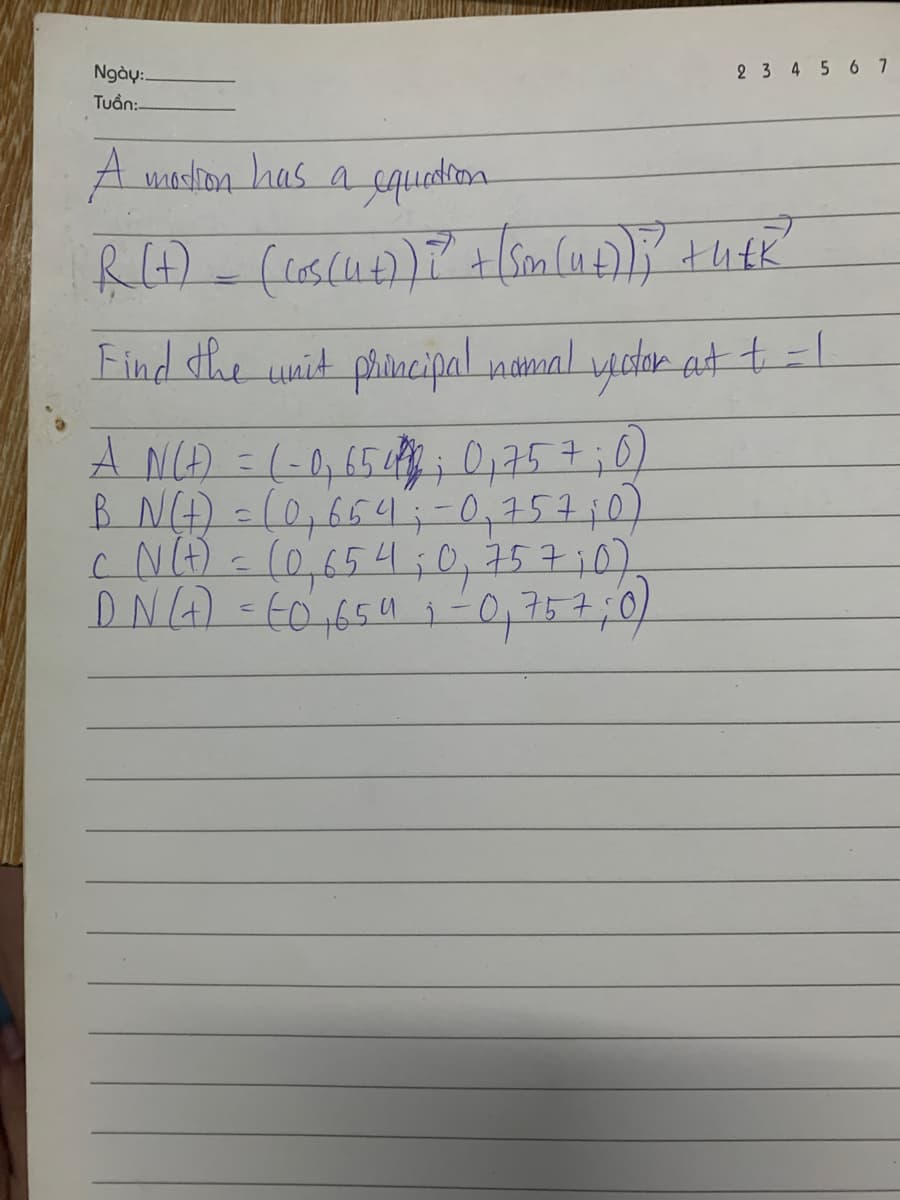 Ngày:
2 3 4 5 6 7
Tuần:
A motion has a equation
R(t) = (cos(4t))i⃗ + (sin(4t))j⃗ + 4tk⃗
Find the unit principal normal vector at t = 1
A N(t) = (-0,654; 0,757; 0)
B N(t) = (0,654; -0,757; 0)
C N(t) = (0,654; 0,757; 0)
D N(t) = (-0,654; -0,757; 0)